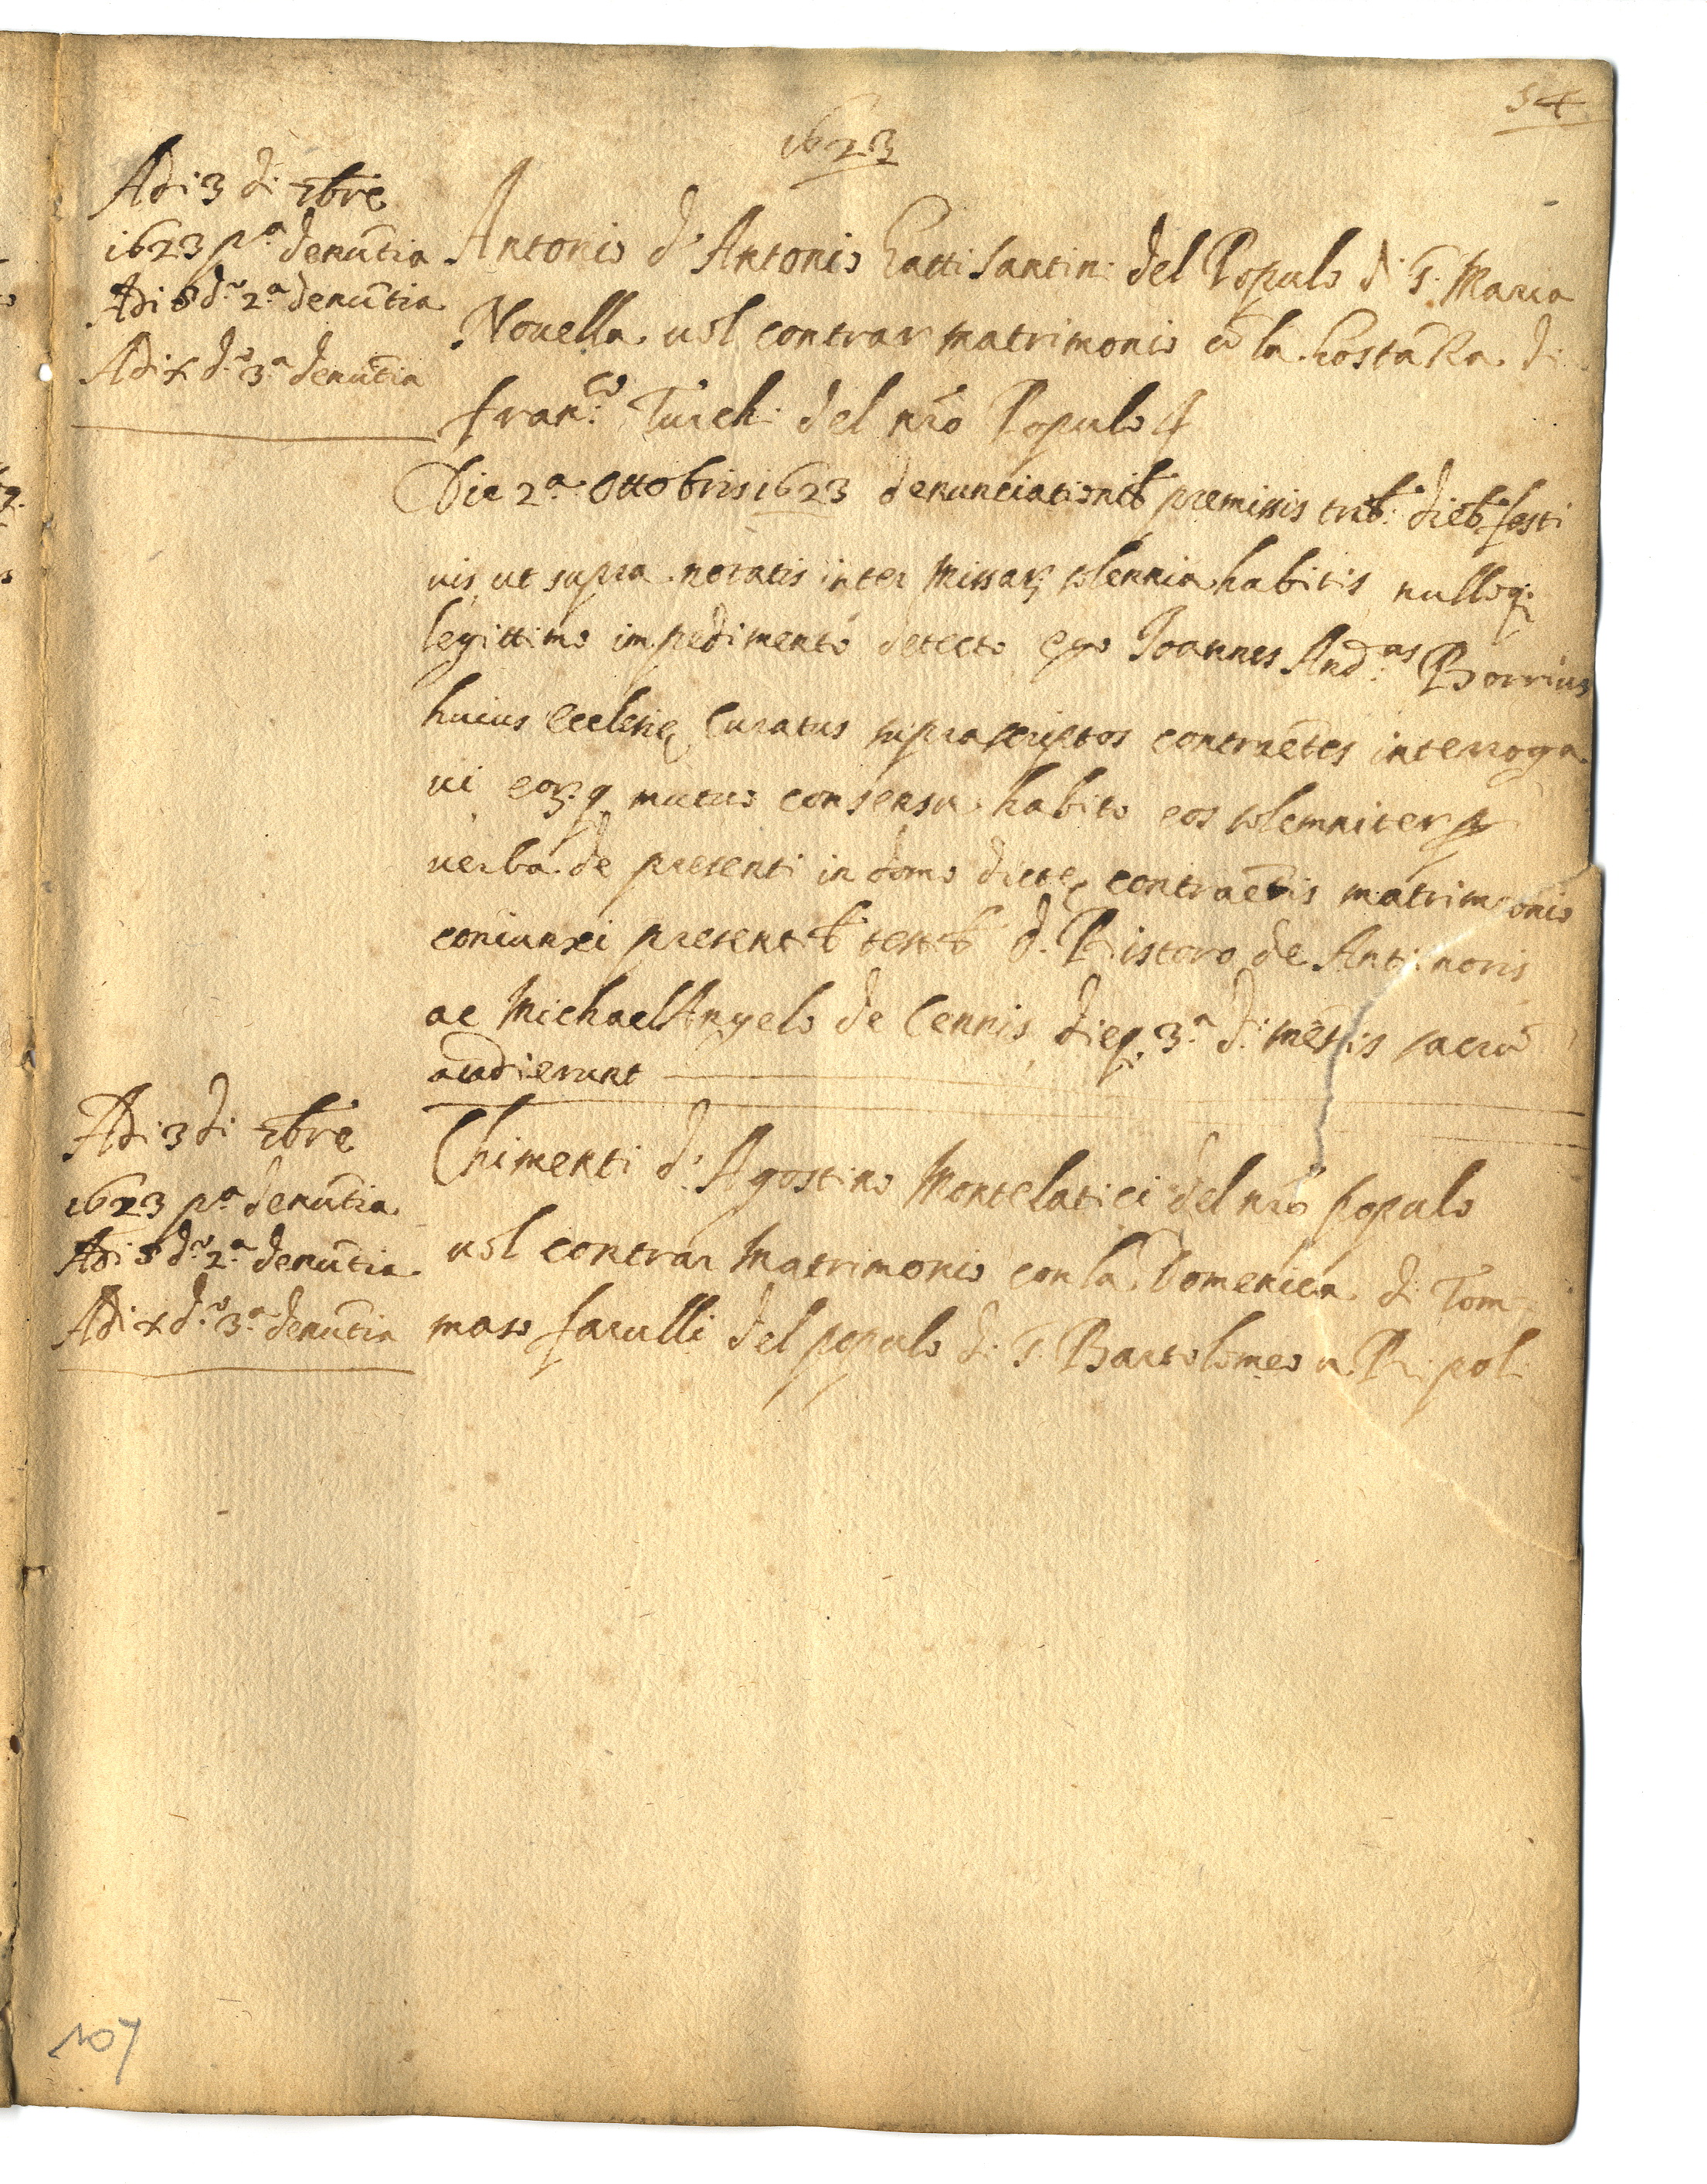 54
1623
Adi 3 di 7bre
1623 pa denũtia
Adi 8 do 2a denũtia
Adi x do 3a denũtia
Antonio d'Antonio Gatti Santini del Populo di S. Maria
Nouella uol contrar matrimonio cõ la Costãza di
franco Turchi del nro Populo
Die 2a Ottobris 1623 denunciationib premissis trib. dieb. festi
uis ut supra notatis inter Missarȝ solennia habitis nulloq;
legittimo impedimento detecto ego Joannes Andas Borrius
huius ecclesię Curatus suprascriptos contraẽtes interroga
ui eorȝq mutuo consensu habito eos solemniter p
uerba de presenti in domo dictę contraẽtis matrimonio
coniunxi presentib testib d. Ristoro de Antinoris
ac MichaelAngelo de Cennis dieq. 3a di mẽsis sacrũ
audierunt
Adi 3 di 7bre
1623 pa denũtia
Adi 8 do 2a denũtia
Adi x do 3a denũtia
Chimenti d'Agostino Montelatici del nro populo
uol contrar Matrimonio con la Domenica di Tom
maso farulli del populo di S. Bartolomeo a Ripoli
107